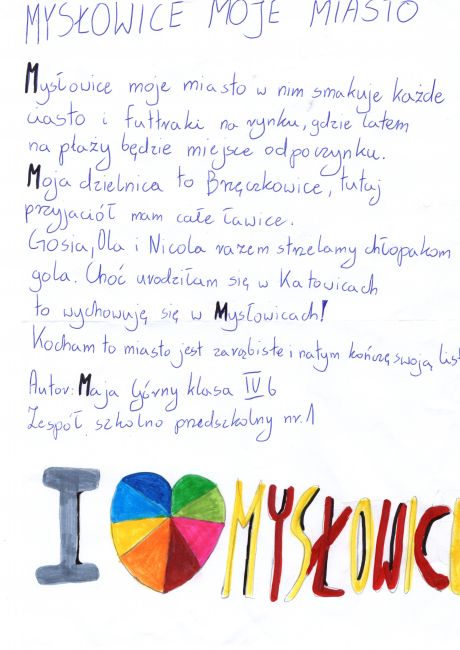 MYSŁOWICE MOJE MIASTO
Mysłowice moje miasto w nim smakuje każde
ciasto i futtraki na rynku, gdzie latem
na plaży będzie miejsce odpoczynku.
Moja dzielnica to Brzęczkowice, tutaj
przyjaciół mam całe ławice.
Gosia, Ola i Nicola razem strzelamy chłopakom
gola. Choć urodziłam się w Katowicach
to wychowuję się w Mysłowicach!
Kocham to miasto jest zarąbiste i na tym kończę swoją list
Autor: Maja Górny klasa IV b
Zespół szkolno przedszkolny nr. 1
I MYSŁOWICE